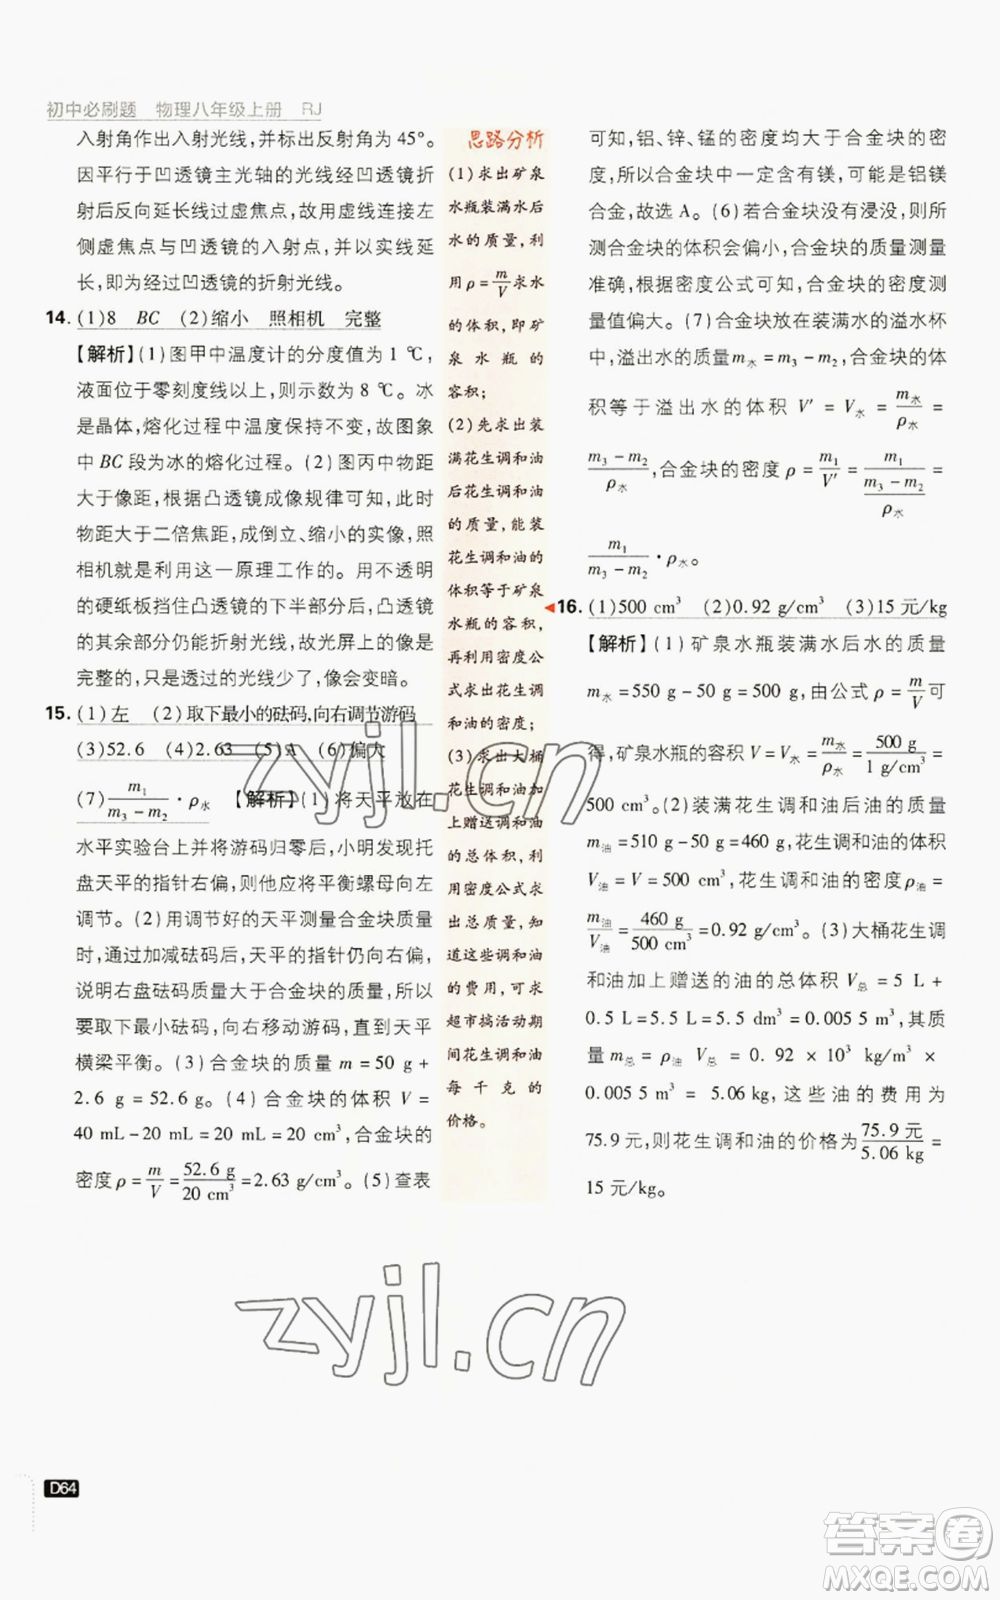 初中必刷题 物理八年级上册 RJ
入射角作出入射光线,并标出反射角为 45°。
因平行于凹透镜主光轴的光线经凹透镜折
射后反向延长线过虚焦点,故用虚线连接左
侧虚焦点与凹透镜的入射点,并以实线延
长,即为经过凹透镜的折射光线。
14. (1)8 BC (2)缩小 照相机 完整
【解析】(1)图甲中温度计的分度值为 1 ℃,
液面位于零刻度线以上,则示数为 8 ℃。冰
是晶体,熔化过程中温度保持不变,故图象
中 BC 段为冰的熔化过程。(2)图丙中物距
大于像距,根据凸透镜成像规律可知,此时
物距大于二倍焦距,成倒立、缩小的实像,照
相机就是利用这一原理工作的。用不透明
的硬纸板挡住凸透镜的下半部分后,凸透镜
的其余部分仍能折射光线,故光屏上的像是
完整的,只是透过的光线少了,像会变暗。
15. (1)左 (2)取下最小的砝码,向右调节游码
(3)52.6 (4)2.63 (5)A (6)偏大
(7) m₁/(m₃ − m₂) · ρ水 【解析】(1)将天平放在
水平实验台上并将游码归零后,小明发现托
盘天平的指针右偏,则他应将平衡螺母向左
调节。(2)用调节好的天平测量合金块质量
时,通过加减砝码后,天平的指针仍向右偏,
说明右盘砝码质量大于合金块的质量,所以
要取下最小砝码,向右移动游码,直到天平
横梁平衡。(3)合金块的质量 m = 50 g +
2.6 g = 52.6 g。(4)合金块的体积 V =
40 mL − 20 mL = 20 mL = 20 cm³,合金块的
密度 ρ = m/V = 52.6 g/20 cm³ = 2.63 g/cm³。(5)查表
思路分析
(1)求出矿泉
水瓶装满水后
水的质量,利
用 ρ = m/V 求水
的体积,即矿
泉水瓶的
容积;
(2)先求出装
满花生调和油
后花生调和油
的质量,能装
花生调和油的
体积等于矿泉
水瓶的容积,
再利用密度公
式求出花生调
和油的密度;
(3)求出大桶
花生调和油加
上赠送调和油
的总体积,利
用密度公式求
出总质量,知
道这些调和油
的费用,可求
超市搞活动期
间花生调和油
每千克的
价格。
可知,铝、锌、锰的密度均大于合金块的密
度,所以合金块中一定含有镁,可能是铝镁
合金,故选 A。(6)若合金块没有浸没,则所
测合金块的体积会偏小,合金块的质量测量
准确,根据密度公式可知,合金块的密度测
量值偏大。(7)合金块放在装满水的溢水杯
中,溢出水的质量 m水 = m₃ − m₂,合金块的体
积等于溢出水的体积 V′ = V水 = m水/ρ水 =
(m₃ − m₂)/ρ水,合金块的密度 ρ = m₁/V′ = m₁/((m₃ − m₂)/ρ水) =
m₁/(m₃ − m₂) · ρ水。
16. (1)500 cm³ (2)0.92 g/cm³ (3)15 元/kg
【解析】(1)矿泉水瓶装满水后水的质量
m水 = 550 g − 50 g = 500 g,由公式 ρ = m/V 可
得,矿泉水瓶的容积 V = V水 = m水/ρ水 = 500 g/1 g/cm³ =
500 cm³。(2)装满花生调和油后油的质量
m油 = 510 g − 50 g = 460 g,花生调和油的体积
V油 = V = 500 cm³,花生调和油的密度 ρ油 =
m油/V油 = 460 g/500 cm³ = 0.92 g/cm³。(3)大桶花生调
和油加上赠送的油的总体积 V总 = 5 L +
0.5 L = 5.5 L = 5.5 dm³ = 0.005 5 m³,其质
量 m总 = ρ油 V总 = 0.92 × 10³ kg/m³ ×
0.005 5 m³ = 5.06 kg,这些油的费用为
75.9 元,则花生调和油的价格为 75.9 元/5.06 kg =
15 元/kg。
zyjl.cn
zyjl.cn
D64
答案卷
MXQE.COM